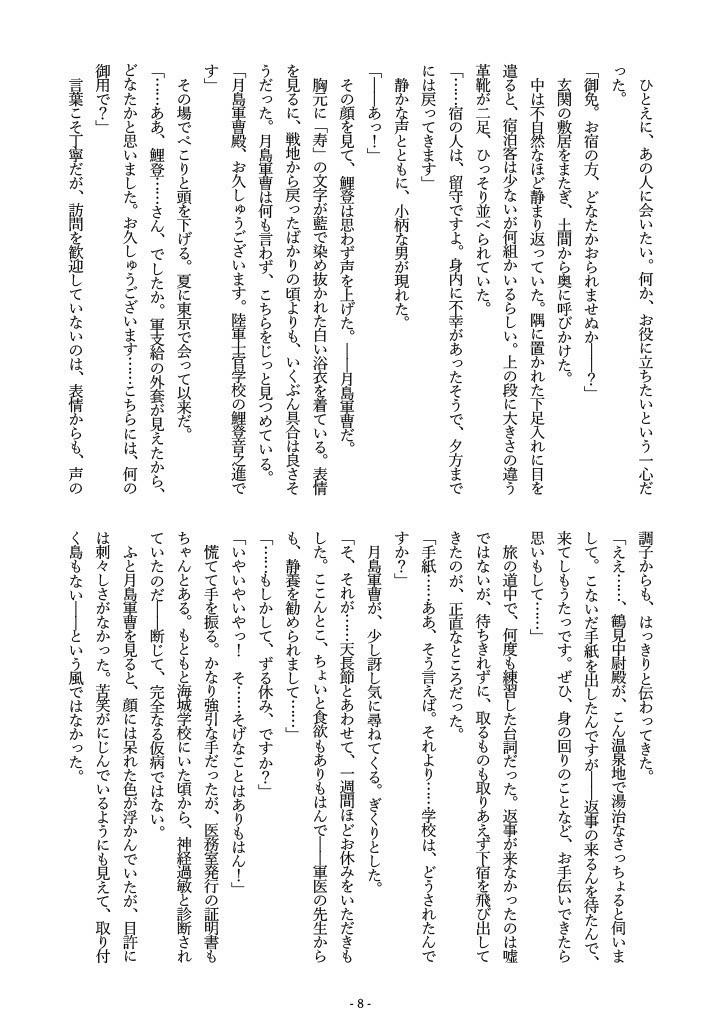 ひとえに、あの人に会いたい。何か、お役に立ちたいという一心だ
った。
「御免。お宿の方、どなたかおられませぬか――？」
玄関の敷居をまたぎ、土間から奥に呼びかけた。
中は不自然なほど静まり返っていた。隅に置かれた下足入れに目を
遣ると、宿泊客は少ないが何組かいるらしい。上の段に大きさの違う
革靴が二足、ひっそり並べられていた。
「……宿の人は、留守ですよ。身内に不幸があったそうで、夕方まで
には戻ってきます」
静かな声とともに、小柄な男が現れた。
「――あっ！」
その顔を見て、鯉登は思わず声を上げた。――月島軍曹だ。
胸元に「寿」の文字が藍で染め抜かれた白い浴衣を着ている。表情
を見るに、戦地から戻ったばかりの頃よりも、いくぶん具合は良さそ
うだった。月島軍曹は何も言わず、こちらをじっと見つめている。
「月島軍曹殿、お久しゅうございます。陸軍士官学校の鯉登音之進で
す」
その場でぺこりと頭を下げる。夏に東京で会って以来だ。
「……ああ、鯉登……さん、でしたか。軍支給の外套が見えたから、
どなたかと思いました。お久しゅうございます……こちらには、何の
御用で？」
言葉こそ丁寧だが、訪問を歓迎していないのは、表情からも、声の
調子からも、はっきりと伝わってきた。
「ええ……、鶴見中尉殿が、こん温泉地で湯治なさっちょると伺いま
して。こないだ手紙を出したんですが――返事の来るんを待たんで、
来てしもうたっです。ぜひ、身の回りのことなど、お手伝いできたら
思いもして……」
旅の道中で、何度も練習した台詞だった。返事が来なかったのは嘘
ではないが、待ちきれずに、取るものも取りあえず下宿を飛び出して
きたのが、正直なところだった。
「手紙……ああ、そう言えば。それより……学校は、どうされたんで
すか？」
月島軍曹が、少し訝し気に尋ねてくる。ぎくりとした。
「そ、それが……天長節とあわせて、一週間ほどお休みをいただきも
した。ここんとこ、ちょいと食欲もありもはんで――軍医の先生から
も、静養を勧められまして……」
「……もしかして、ずる休み、ですか？」
「いやいやいやっ！　そ……そげなことはありもはん！」
慌てて手を振る。かなり強引な手だったが、医務室発行の証明書も
ちゃんとある。もともと海城学校にいた頃から、神経過敏と診断され
ていたのだ――断じて、完全なる仮病ではない。
ふと月島軍曹を見ると、顔には呆れた色が浮かんでいたが、目許に
は刺々しさがなかった。苦笑がにじんでいるようにも見えて、取り付
く島もない――という風ではなかった。
- 8 -